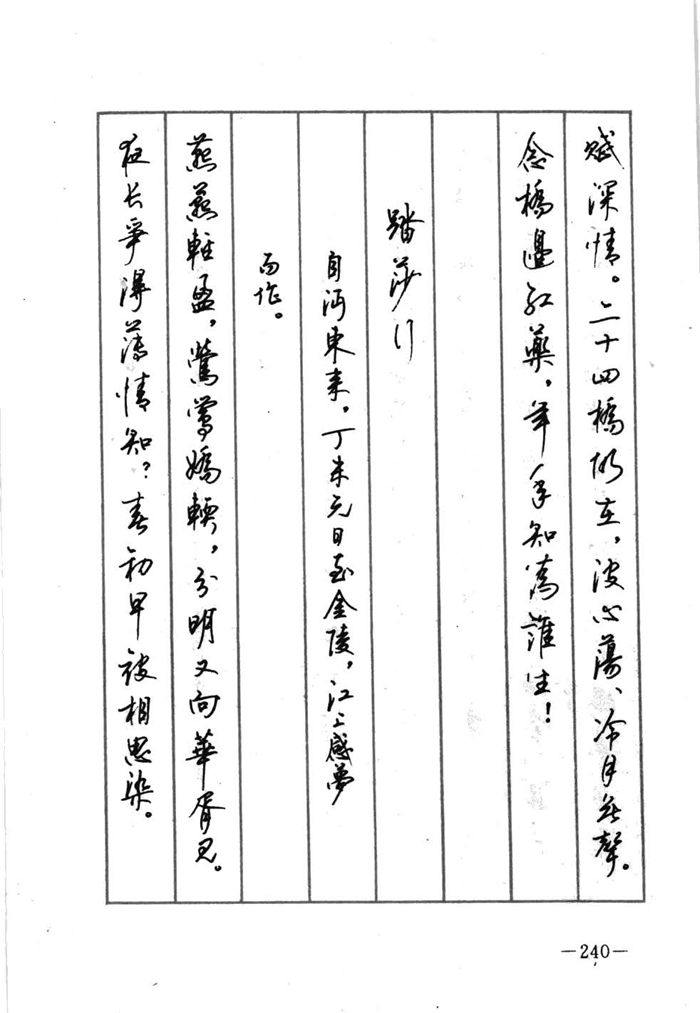 赋深情。二十四橋仍在，波心蕩、冷月無聲。
念橋邊红藥，年年知為誰生！
踏莎行
自沔東来，丁未元日至金陵，江上感夢
而作。
燕燕輕盈，鶯鶯嬌輭，分明又向華胥見。
夜长爭得薄情知？春初早被相思染。
—240—